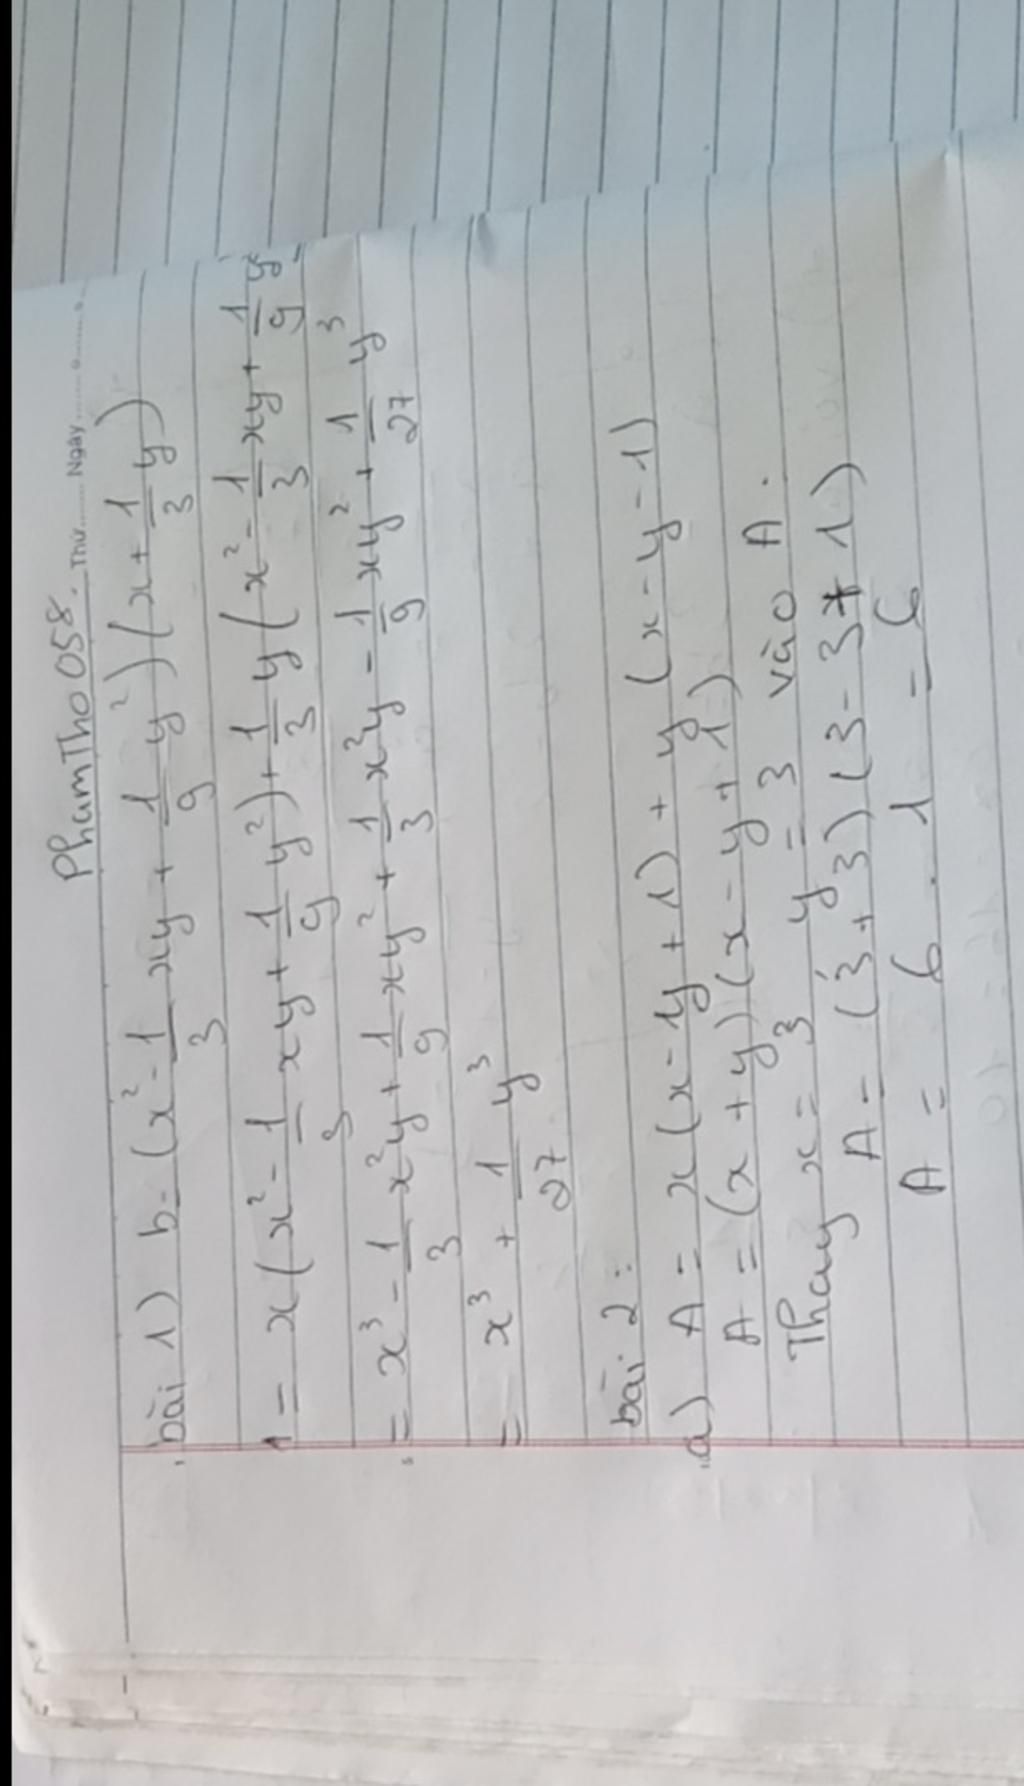 PhamTho058. Thứ......... Ngày.........
bài 1) b = (x² - 1/3 xy + 1/9 y²)(x + 1/3 y)
= x(x² - 1/3 xy + 1/9 y²) + 1/3 y(x² - 1/3 xy + 1/9 y²
= x³ - 1/3 x²y + 1/9 xy² + 1/3 x²y - 1/9 xy² + 1/27 y³
= x³ + 1/27 y³
bài 2:
a) A = x(x - y + 1) + y(x - y - 1)
A = (x + y)(x - y + 1)
Thay x = 3 y = 3 vào A.
A = (3 + 3)(3 - 3 + 1)
A = 6 . 1 = 6